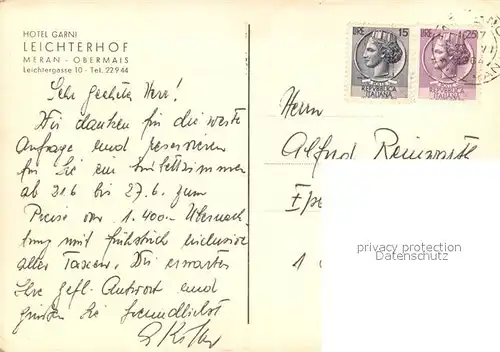 HOTEL GARNI
LEICHTERHOF
MERAN - OBERMAIS
Leichtergasse 10 - Tel. 22944
Sehr geehrter Herr!
Wir danken für die werte
Anfrage und reservieren
für Sie ein
ab 21.6 bis 27.6. zum
Preise von 1.400.- Übernach-
tung mit Frühstück inclusive
aller Taxen. Wir erwarten
Ihre gefl. Antwort und
grüßen Sie freundlichst
LIRE 15
REPVBBLICA
ITALIANA
LIRE 25
REPVBBLICA
ITALIANA
Herrn
Alfred
privacy protection
www.ansichtskarten-center.de
1